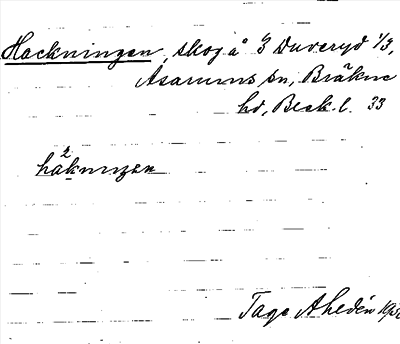 Hackningen, skog å 3 Duveryd 1/3,
Asarums sn, Bräkne
hd, Blek. l. 33
2
håkningen
Tage Ahldén 193